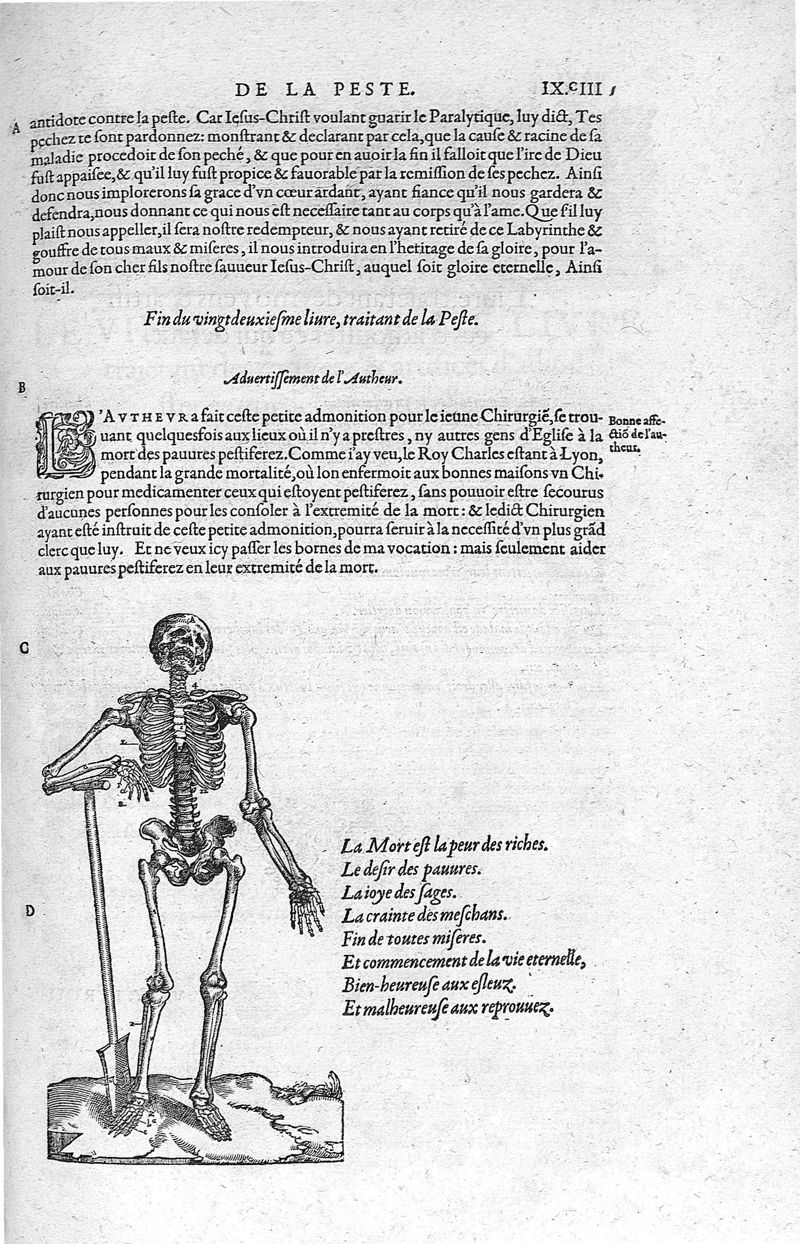 DE LA PESTE. IX.CIII
A
antidote contre la peſte. Car Ieſus-Chriſt voulant guarir le Paralytique, luy dict, Tes
pechez te ſont pardonnez: monſtrant & declarant par cela, que la cauſe & racine de ſa
maladie procedoit de ſon peché, & que pour en auoir la fin il falloit que l'ire de Dieu
fuſt appaiſee, & qu'il luy fuſt propice & fauorable par la remiſſion de ſes pechez. Ainſi
donc nous implorerons ſa grace d'vn cœur ardant, ayant fiance qu'il nous gardera &
defendra, nous donnant ce qui nous eſt neceſſaire tant au corps qu'à l'ame. Que ſ'il luy
plaiſt nous appeller, il ſera noſtre redempteur, & nous ayant retiré de ce Labyrinthe &
gouffre de tous maux & miſeres, il nous introduira en l'heritage de ſa gloire, pour l'a-
mour de ſon cher fils noſtre ſauueur Ieſus-Chriſt, auquel ſoit gloire eternelle, Ainſi
ſoit-il.
Fin du vingtdeuxieſme liure, traitant de la Peſte.
B
Aduertiſſement de l'Autheur.
L'AVTHEVR a fait ceſte petite admonition pour le ieune Chirurgiẽ, ſe trou-
uant quelquesfois aux lieux où il n'y a preſtres, ny autres gens d'Egliſe à la
mort des pauures peſtiferez. Comme i'ay veu, le Roy Charles eſtant à Lyon,
pendant la grande mortalité, où lon enfermoit aux bonnes maiſons vn Chi-
rurgien pour medicamenter ceux qui eſtoyent peſtiferez, ſans pouuoir eſtre ſecourus
d'aucunes perſonnes pour les conſoler à l'extremité de la mort: & ledict Chirurgien
ayant eſté inſtruit de ceſte petite admonition, pourra ſeruir à la neceſſité d'vn plus grãd
clerc que luy. Et ne veux icy paſſer les bornes de ma vocation: mais ſeulement aider
aux pauures peſtiferez en leur extremité de la mort.
Bonne affe-
ctiõ de l'au-
theur.
C
D
La Mort eſt la peur des riches.
Le deſir des pauures.
La ioye des ſages.
La crainte des meſchans.
Fin de toutes miſeres.
Et commencement de la vie eternelle,
Bien-heureuſe aux eſleuz.
Et malheureuſe aux reprouuez.